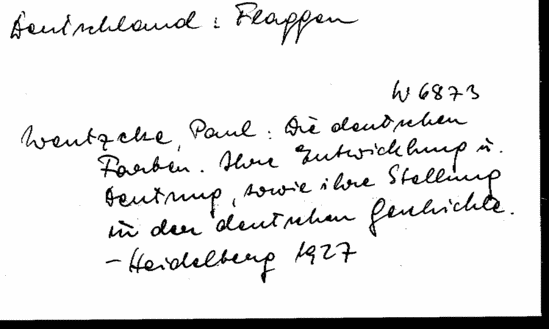 Deutschland : Flaggen
W 6873
Wentzcke, Paul : Die deutschen
Farben. Ihre Entwicklung u.
Deutung, sowie ihre Stellung
in der deutschen Geschichte.
- Heidelberg 1927